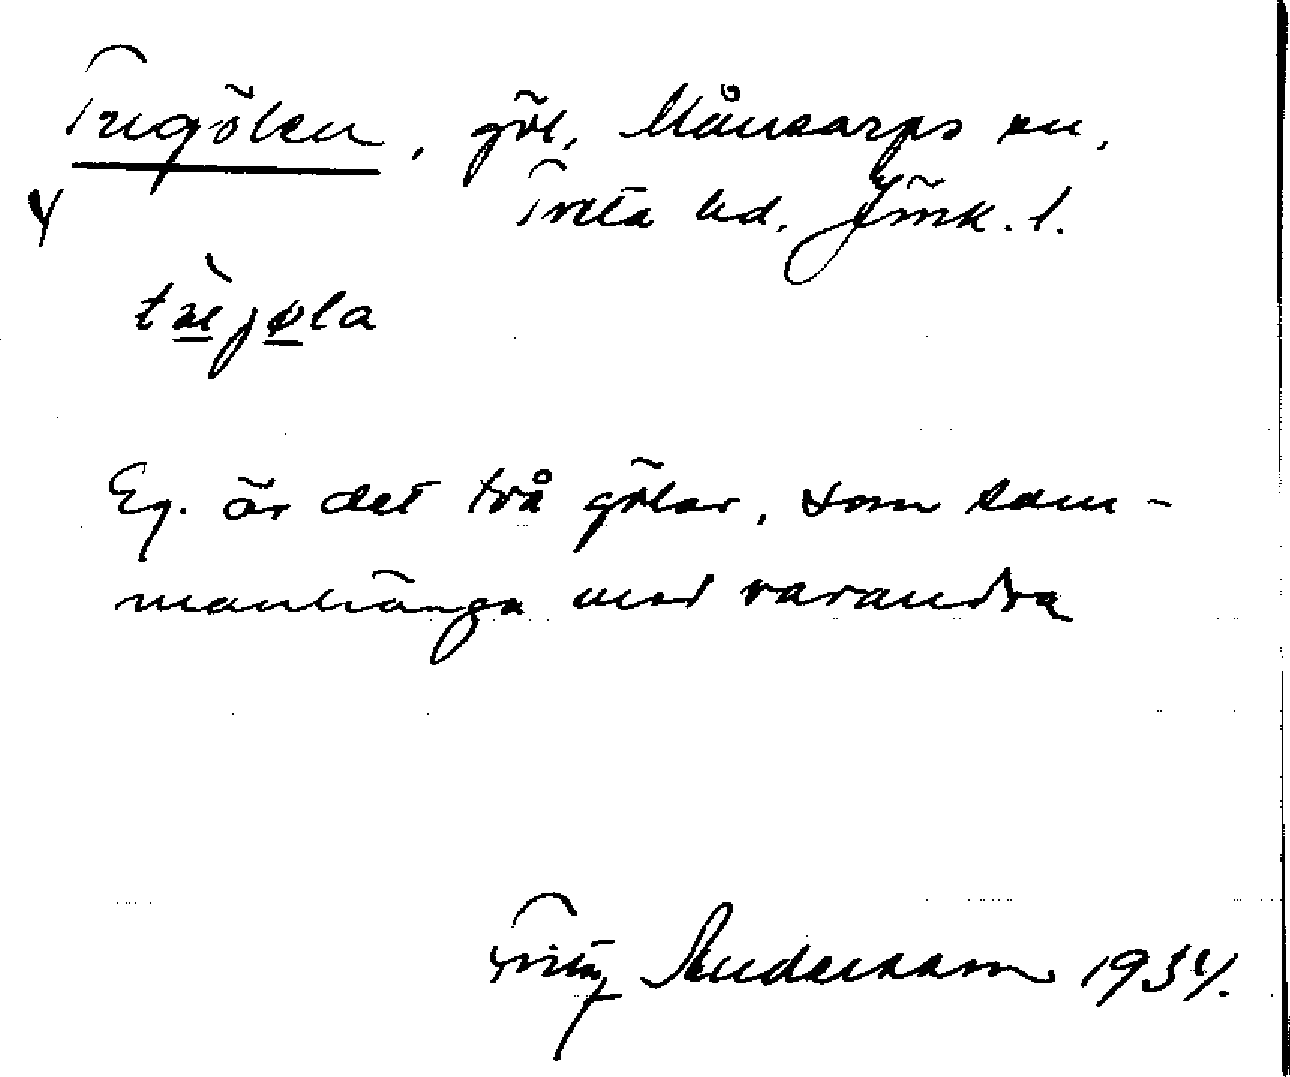 Tregölen, göl, Månsarps sn,
Tveta hd. Jönk. l.
y
træ̀jøla
Eg. är det två gölar, som sam-
manhänga med varandra
Fritz Andersson 1934.